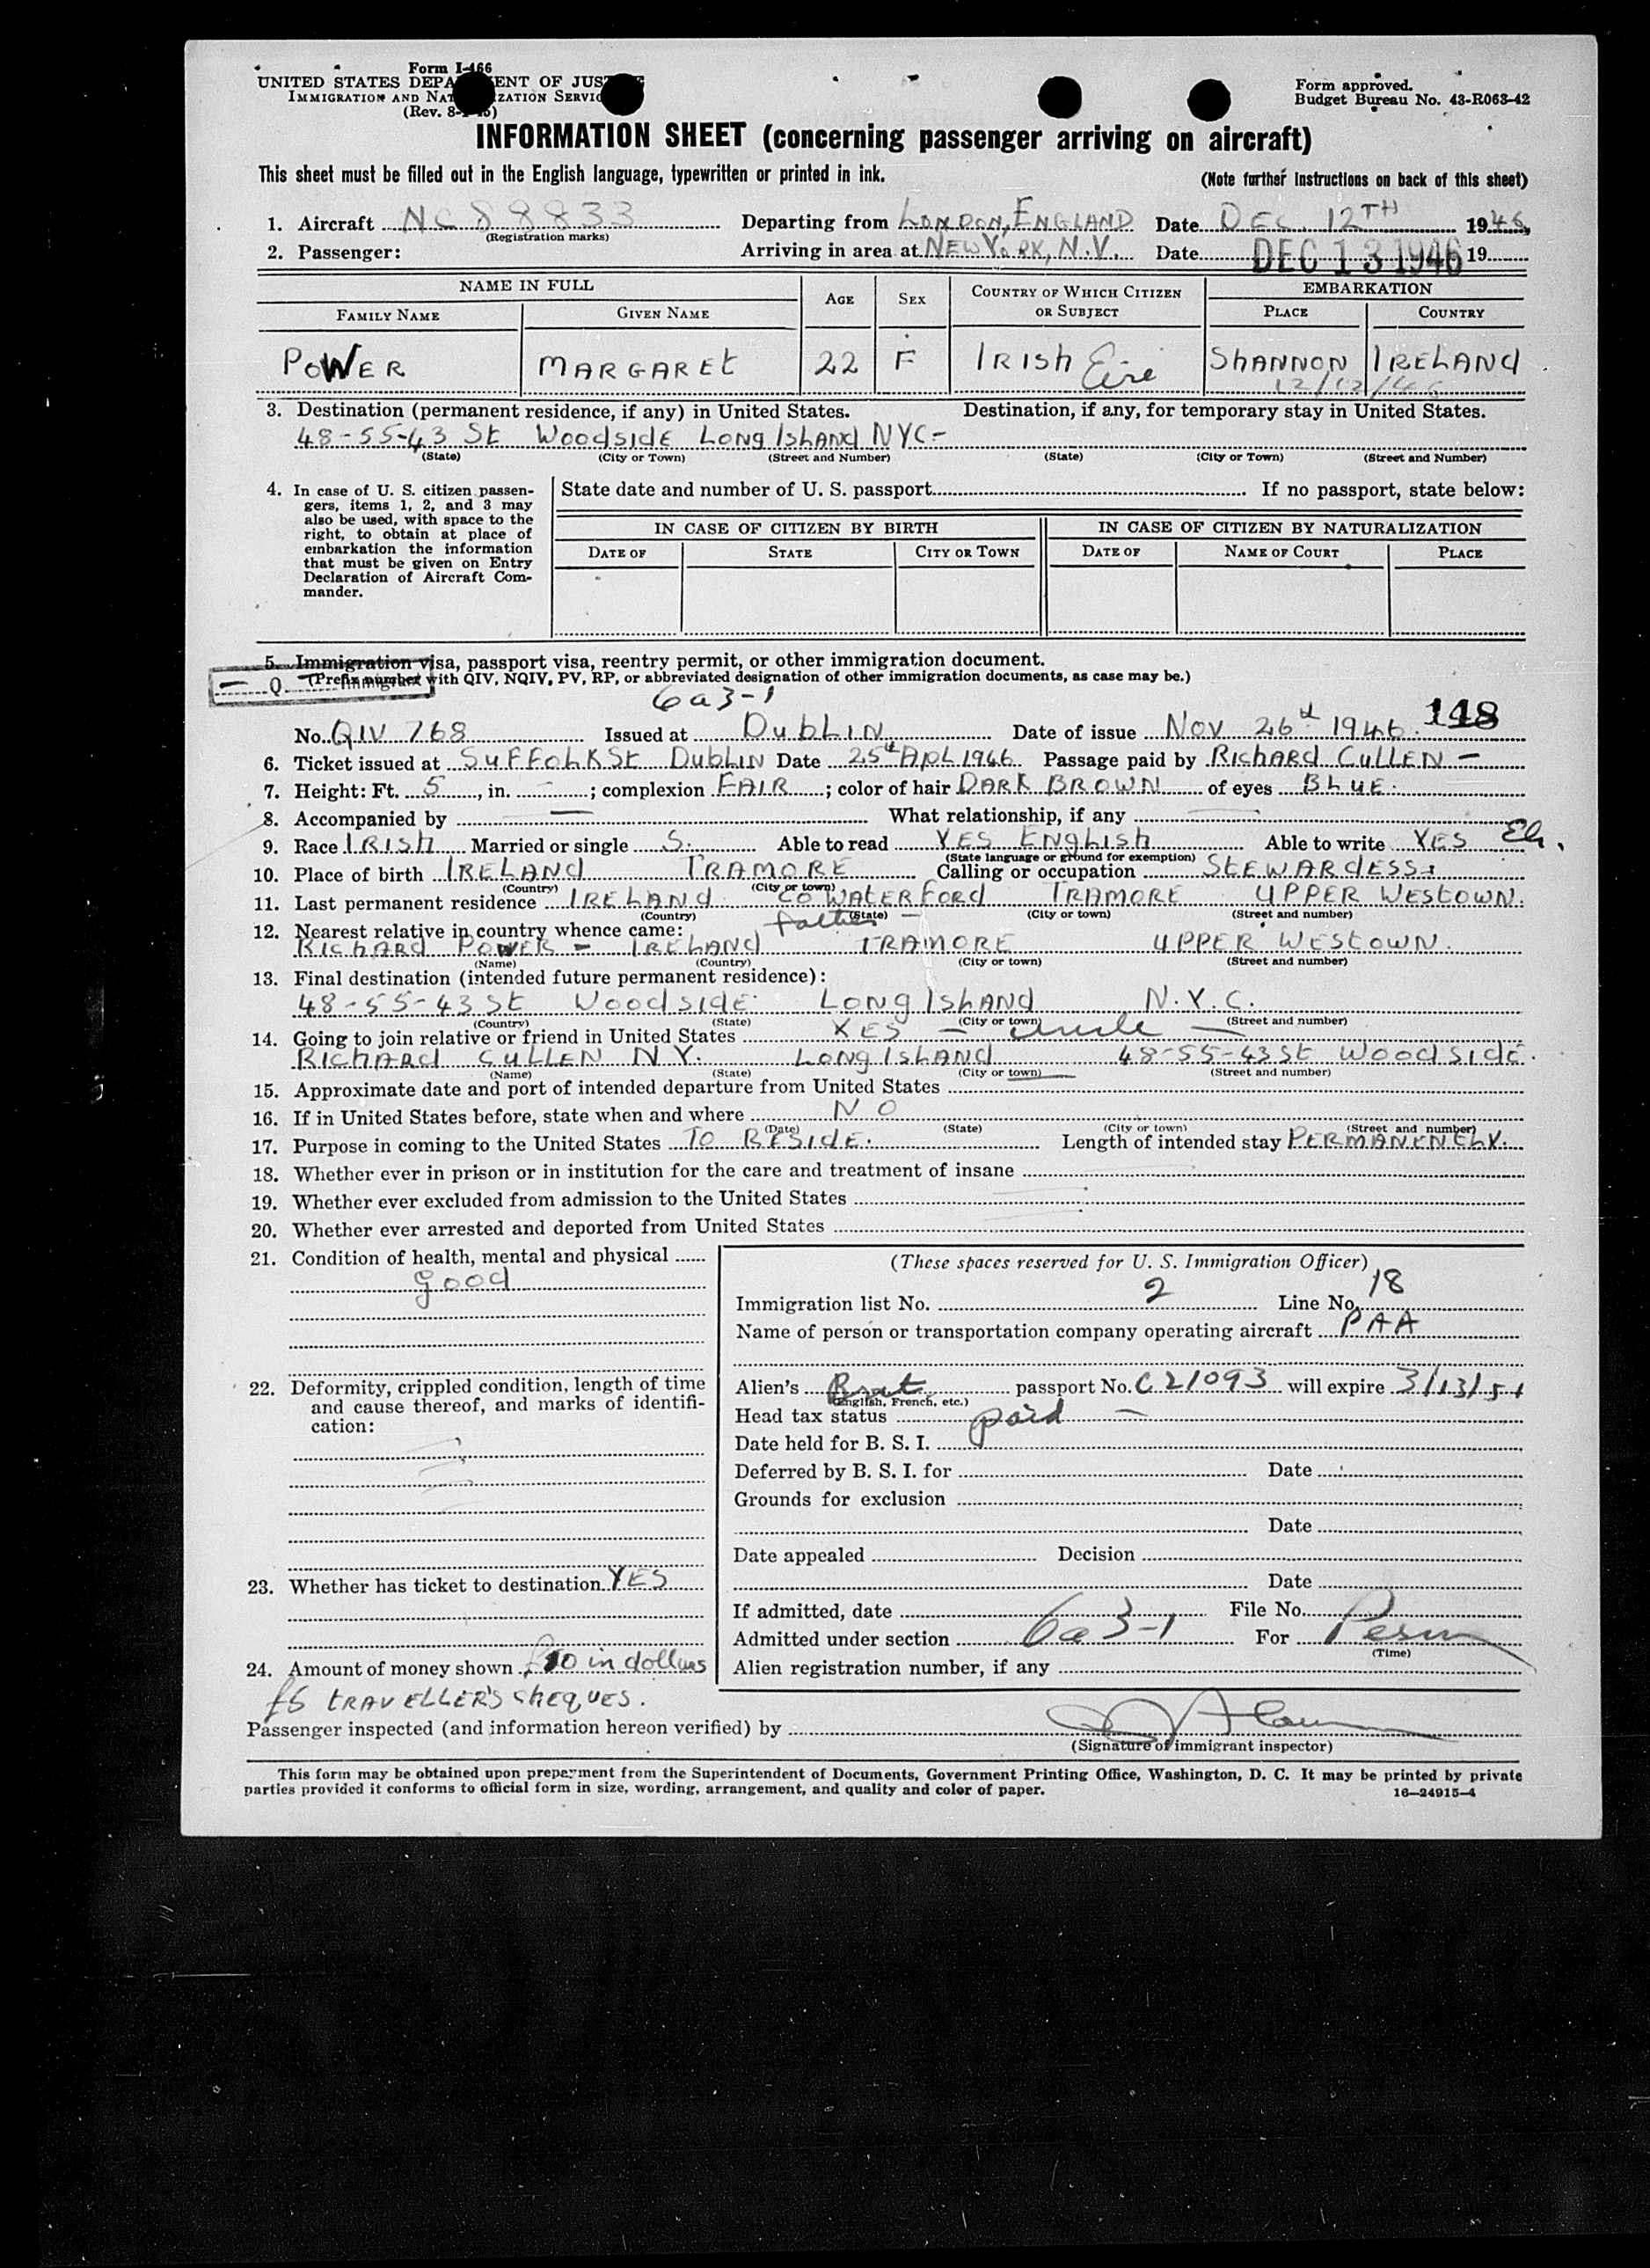 Form I-466
UNITED STATES DEPA ENT OF JUS
IMMIGRATION AND NAT ZATION SERVIC
(Rev. 8-
Form approved.
Budget Bureau No. 43-R063-42
INFORMATION SHEET (concerning passenger arriving on aircraft)
This sheet must be filled out in the English language, typewritten or printed in ink. (Note further instructions on back of this sheet)
1. Aircraft NC 88833 Departing from LONDON, ENGLAND Date DEC. 12TH 1946
(Registration marks)
2. Passenger: Arriving in area at NEW YORK, N.Y. Date DEC 13 1946 19
NAME IN FULL AGE SEX COUNTRY OF WHICH CITIZEN OR SUBJECT EMBARKATION
FAMILY NAME GIVEN NAME PLACE COUNTRY
POWER MARGARET 22 F IRISH Eire SHANNON IRELAND
12/12/46
3. Destination (permanent residence, if any) in United States. Destination, if any, for temporary stay in United States.
48-55-43 St Woodside Long Island NYC-
(State) (City or Town) (Street and Number) (State) (City or Town) (Street and Number)
4. In case of U. S. citizen passengers, items 1, 2, and 3 may also be used, with space to the right, to obtain at place of embarkation the information that must be given on Entry Declaration of Aircraft Commander.
State date and number of U. S. passport If no passport, state below:
IN CASE OF CITIZEN BY BIRTH IN CASE OF CITIZEN BY NATURALIZATION
DATE OF STATE CITY OR TOWN DATE OF NAME OF COURT PLACE
5. Immigration visa, passport visa, reentry permit, or other immigration document.
Q Immigrant
(Prefix number with QIV, NQIV, PV, RP, or abbreviated designation of other immigration documents, as case may be.)
6a3-1
148
No. QIV 768 Issued at DUBLIN Date of issue Nov 26th 1946.
6. Ticket issued at SUFFOLK St DUBLIN Date 25th Apl 1946 Passage paid by RICHARD CULLEN -
7. Height: Ft. 5, in. - ; complexion FAIR ; color of hair DARK BROWN of eyes BLUE.
8. Accompanied by — What relationship, if any —
9. Race IRISH Married or single S. Able to read YES ENGLISH Able to write YES
(State language or ground for exemption)
10. Place of birth IRELAND TRAMORE Calling or occupation STEWARDESS
(Country) (City or town)
11. Last permanent residence IRELAND CO WATERFORD TRAMORE UPPER WESTOWN.
(Country) (State) (City or town) (Street and number)
12. Nearest relative in country whence came: father -
RICHARD POWER - IRELAND TRAMORE UPPER WESTOWN.
(Name) (Country) (City or town) (Street and number)
13. Final destination (intended future permanent residence):
48-55-43 St Woodside Long Island N.Y.C.
(Country) (State) (City or town) (Street and number)
14. Going to join relative or friend in United States YES - uncle -
RICHARD CULLEN N.Y. LONG ISLAND 48-55-43 St WOODSIDE.
(Name) (State) (City or town) (Street and number)
15. Approximate date and port of intended departure from United States
16. If in United States before, state when and where NO
(Date) (State) (City or town) (Street and number)
17. Purpose in coming to the United States TO RESIDE. Length of intended stay PERMANENELY.
18. Whether ever in prison or in institution for the care and treatment of insane
19. Whether ever excluded from admission to the United States
20. Whether ever arrested and deported from United States
21. Condition of health, mental and physical
good
22. Deformity, crippled condition, length of time and cause thereof, and marks of identification:
23. Whether has ticket to destination YES
24. Amount of money shown £10 in dollars
£5 TRAVELLER'S CHEQUES.
(These spaces reserved for U. S. Immigration Officer)
Immigration list No. 2 Line No. 18
Name of person or transportation company operating aircraft PAA
Alien's passport No. C21093 will expire 3/13/51
(English, French, etc.)
Head tax status paid -
Date held for B. S. I.
Deferred by B. S. I. for Date
Grounds for exclusion
Date
Date appealed Decision
Date
If admitted, date File No.
Admitted under section 6a3-1 For Perm
(Time)
Alien registration number, if any
Passenger inspected (and information hereon verified) by
(Signature of immigrant inspector)
This form may be obtained upon prepayment from the Superintendent of Documents, Government Printing Office, Washington, D. C. It may be printed by private
parties provided it conforms to official form in size, wording, arrangement, and quality and color of paper. 16—24915-4